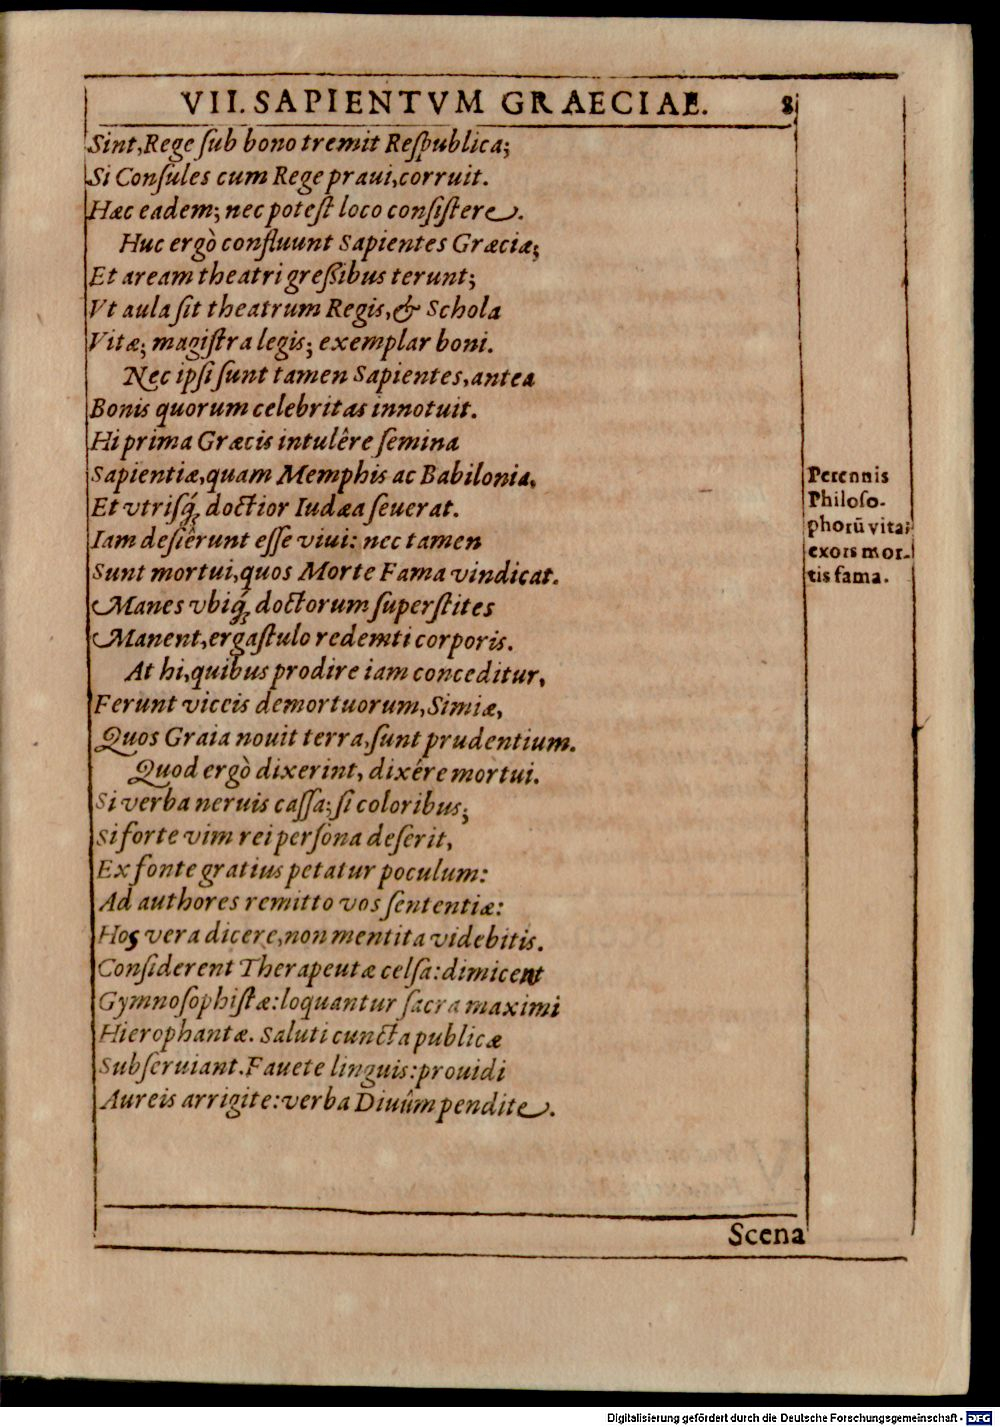 VII. SAPIENTVM GRAECIAE. 8
Sint, Rege ſub bono tremit Reſpublica;
Si Conſules cum Rege praui, corruit.
Hæc eadem; nec poteſt loco conſiſtere.
Huc ergò confluunt Sapientes Græciæ;
Et aream theatri greſſibus terunt;
Vt aula ſit theatrum Regis, & Schola
Vitæ; magiſtra legis; exemplar boni.
Nec ipſi ſunt tamen Sapientes, antea
Bonis quorum celebritas innotuit.
Hi prima Græcis intulêre ſemina
Sapientiæ, quam Memphis ac Babilonia,
Et vtriſq́; doctior Iudæa ſeuerat.
Iam deſiêrunt eſſe viui: nec tamen
Sunt mortui, quos Morte Fama vindicat.
Manes vbiq́; doctorum ſuperſtites
Manent, ergaſtulo redemti corporis.
At hi, quibus prodire iam conceditur,
Ferunt viceis demortuorum, Simiæ,
Quos Graia nouit terra, ſunt prudentium.
Quod ergò dixerint, dixêre mortui.
Si verba neruis caſſa; ſi coloribus;
Si forte vim rei perſona deſerit,
Ex fonte gratius petatur poculum:
Ad authores remitto vos ſententiæ:
Hos vera dicere, non mentita videbitis.
Conſiderent Therapeutæ celſa: dimicent
Gymnoſophiſtæ: loquantur ſacra maximi
Hierophantæ. Saluti cuncta publicæ
Subſeruiant. Fauete linguis: prouidi
Aureis arrigite: verba Diuûm pendite.
Perennis
Philoſo-
phorũ vita,
exors mor-
tis fama.
Scena
Digitalisierung gefördert durch die Deutsche Forschungsgemeinschaft - DFG